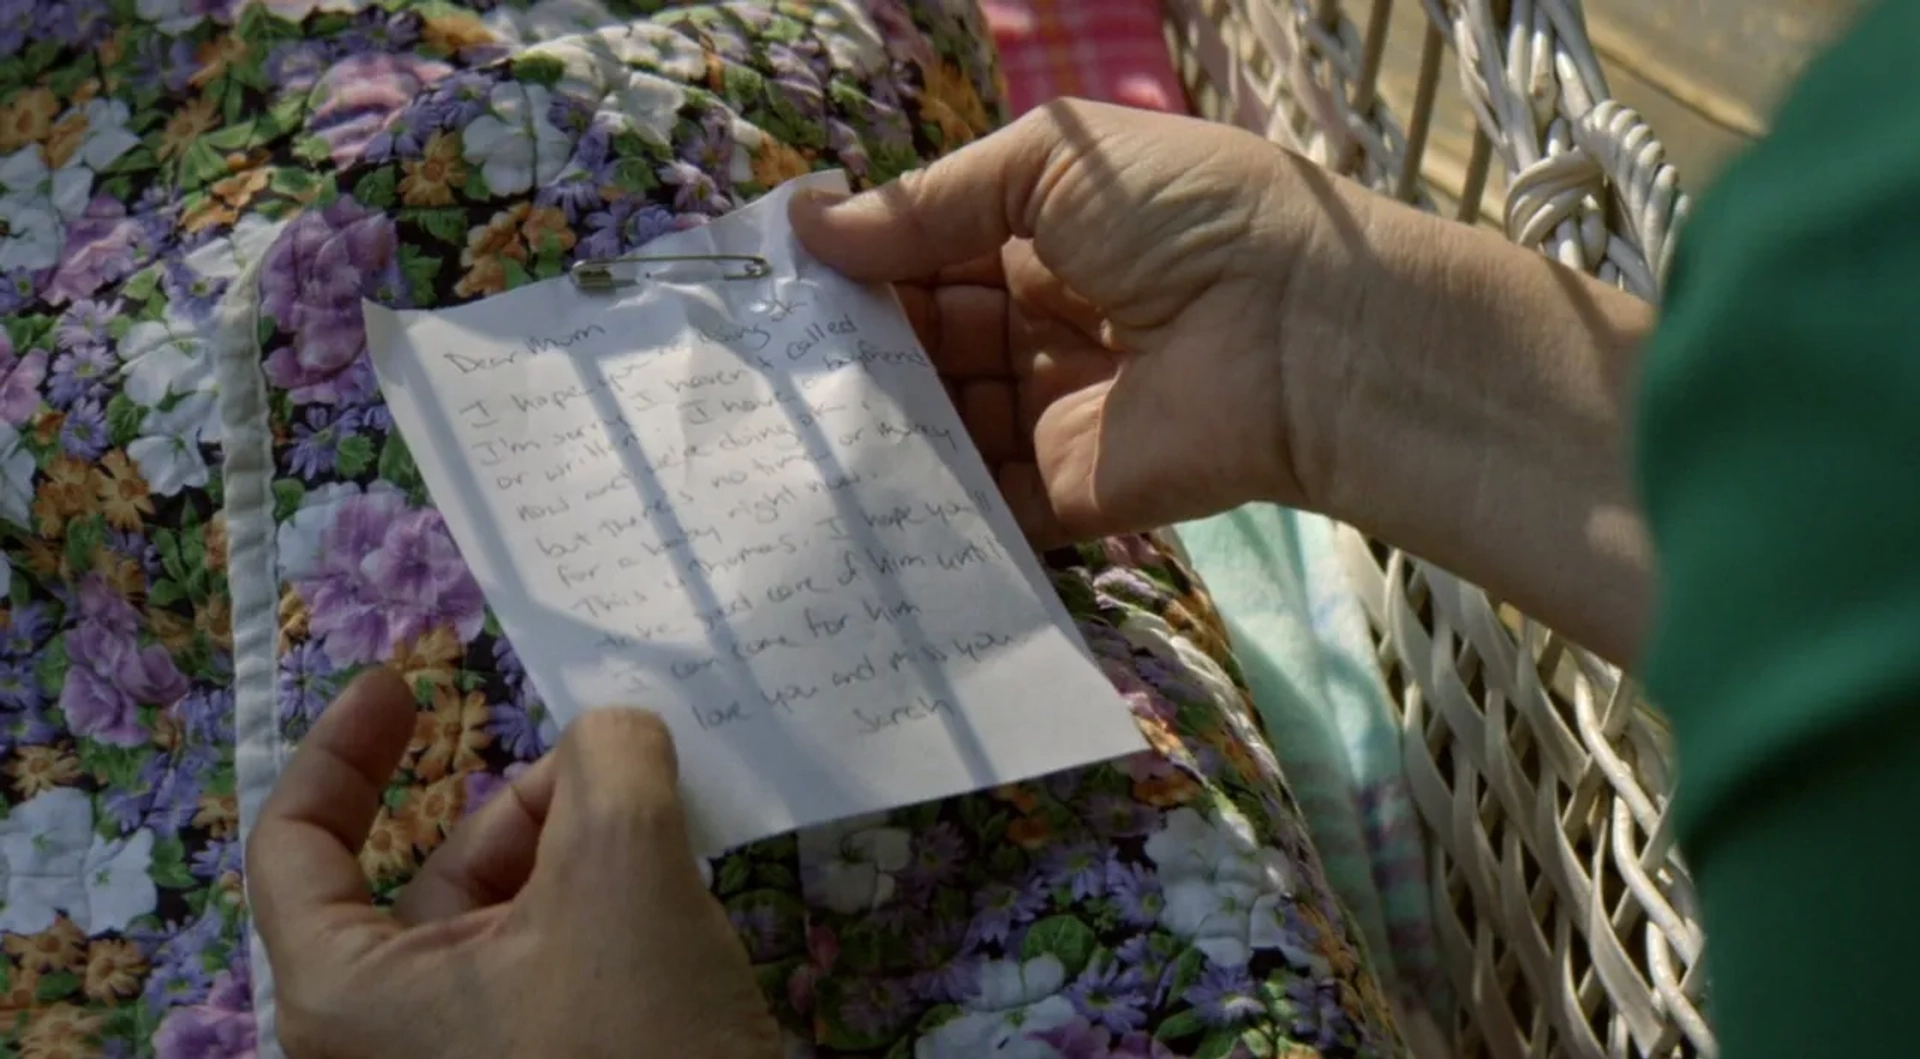 Dear Mum
I hope you're doing ok
I'm sorry I haven't called
or written. I have a boyfriend
now and we're doing ok
but there's no time or money
for a baby right now.
This is Thomas. I hope you'll
take good care of him until
I can come for him
love you and miss you
Sarah